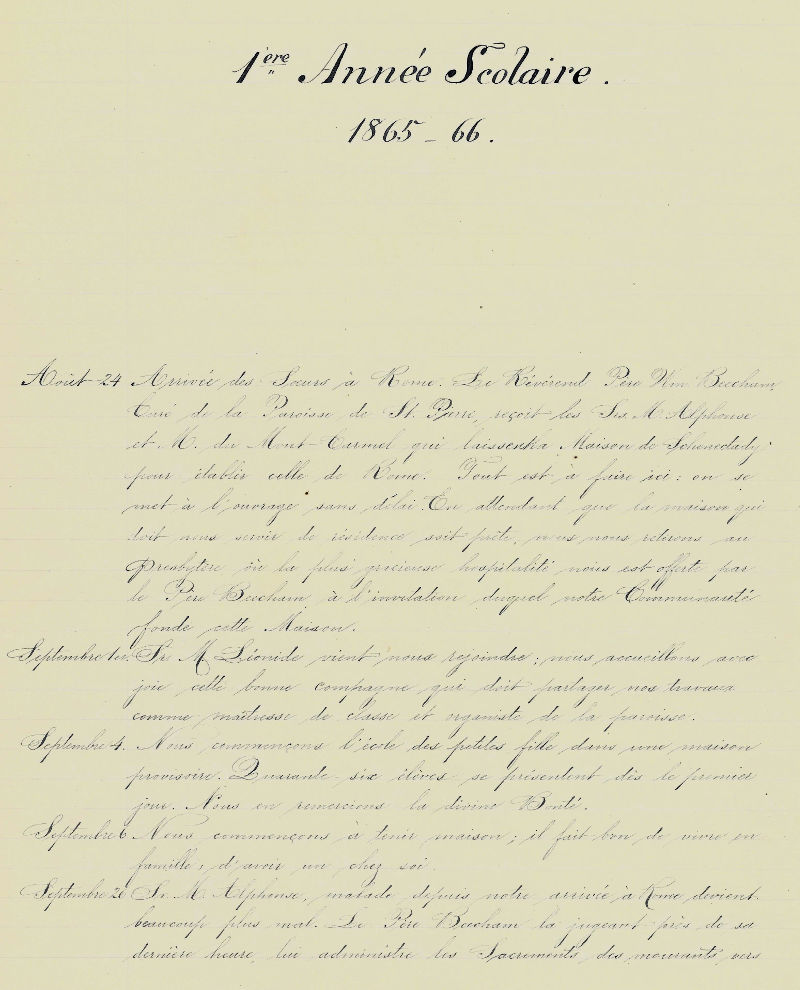 1ère Année Scolaire.
1865 - 66.
Août 24 Arrivée des Sœurs à Rome. Le Révérend Père Wm. Beecham,
Curé de la Paroisse de St. Pierre, reçoit les Srs. M. Alphonse
et M. du Mont-Carmel qui laissent la Maison de Schenectady
pour établir celle de Rome. Tout est à faire ici: on se
met à l'ouvrage sans délai. En attendant que la maison qui
doit nous servir de résidence soit prête, nous nous retirons au
Presbytère où la plus gracieuse hospitalité nous est offerte par
le Père Beecham à l'invitation duquel notre Communauté
fonde cette Maison.
Septembre 1er Sr. M. Léonide vient nous rejoindre; nous accueillons avec
joie cette bonne compagne qui doit partager nos travaux
comme maîtresse de classe et organiste de la paroisse.
Septembre 4. Nous commençons l'école des petites fille dans une maison
provisoire. Quarante-six élèves se présentent dès le premier
jour. Nous en remercions la divine Bonté.
Septembre 6 Nous commençons à tenir maison; il fait bon de vivre en
famille, d'avoir un chez soi.
Septembre 26 Sr. M. Alphonse, malade depuis notre arrivée à Rome devient
beaucoup plus mal. Le Père Beecham la jugeant près de sa
dernière heure, lui administre les Sacrements des mourants vers